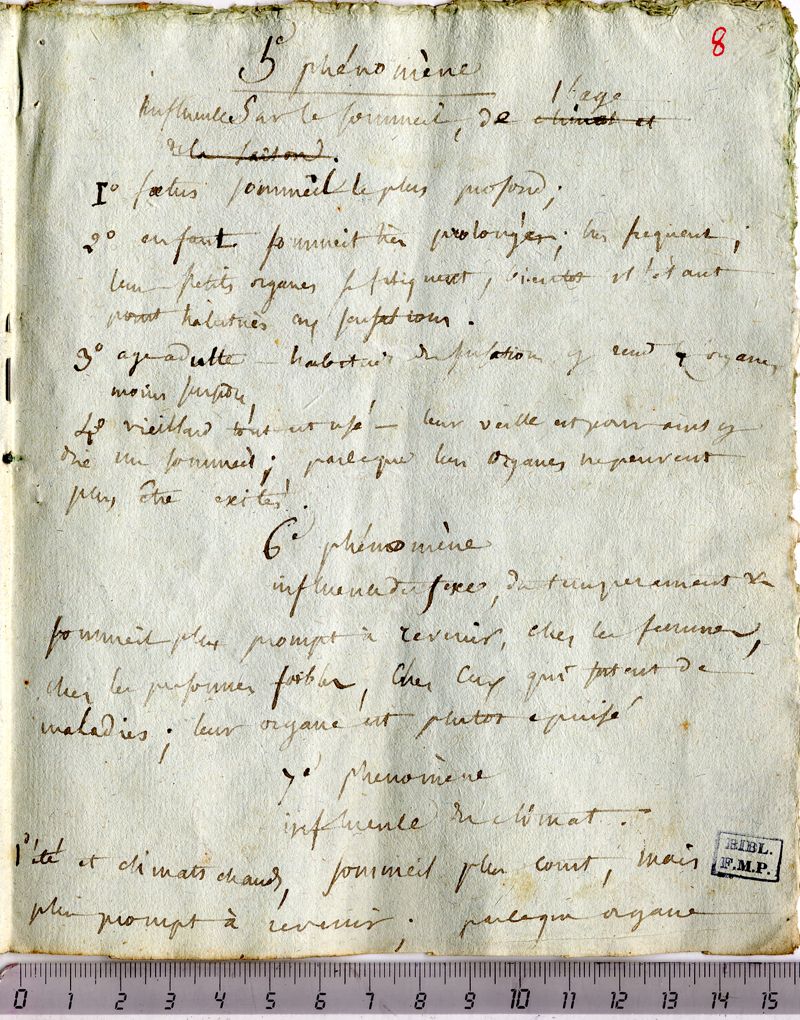 8
5e phénomène
influence Sur le sommeil, de l'age
climat et
de la saison.
1° fœtus sommeil le plus profond;
2° enfant sommeil très prolongés; très frequent;
leurs petits organes se fatiguent, vientot n'étant
point habitués aux sensations.
3° age adulte – habitude des sensations y rend les organes
moins
4° vieillard tout est usé – leur veille est pour ainsy
dire un sommeil; parceque leurs organes ne peuvent
plus être exités.
6e phénomène
influence du sexe, du temperament &a
sommeil plus prompt à revenir, chez les femmes,
chez les personnes foibles, chez ceux qui sortent de
maladies; leur organe est plutot epuisé
7e phenomène
influence du climat.
1° été et climats chauds, sommeil plus court, mais
plus prompt à revenir; parceque organe
BIBL.
F.M.P.
0 1 2 3 4 5 6 7 8 9 10 11 12 13 14 15